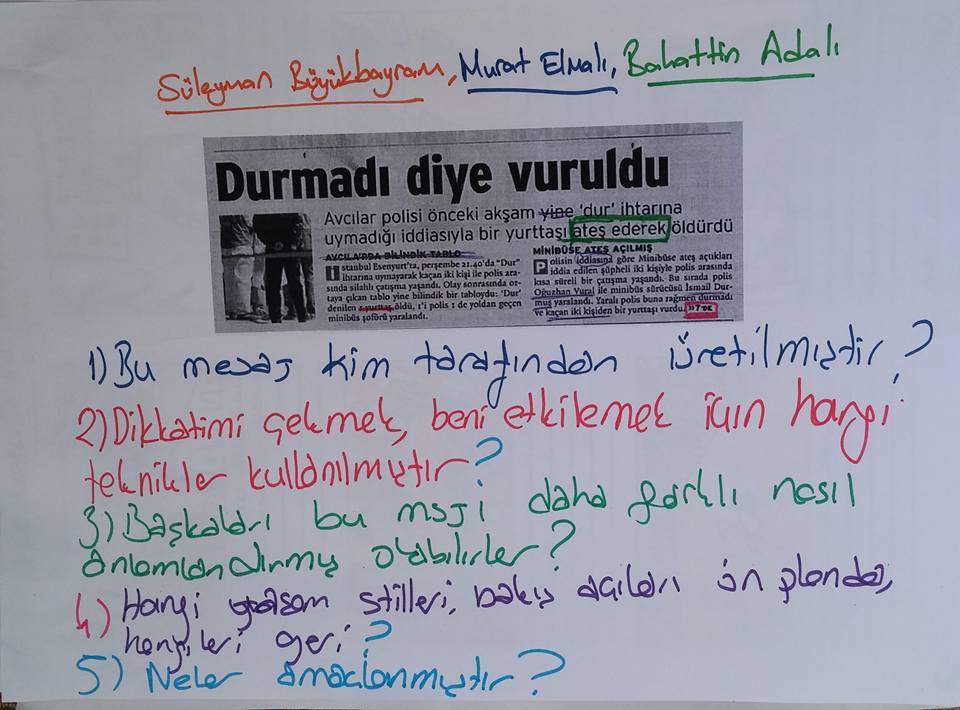 Süleyman Büyükbayram, Murat Elmalı, Bahattin Adalı
Durmadı diye vuruldu
Avcılar polisi önceki akşam yine 'dur' ihtarına
uymadığı iddiasıyla bir yurttaşı ateş ederek öldürdü
AVCILAR'DA BİLİNDİK TABLO
İstanbul Esenyurt'ta, perşembe 21.40'da "Dur"
ihtarına uymayarak kaçan iki kişi ile polis ara-
sında silahlı çatışma yaşandı. Olay sonrasında or-
taya çıkan tablo yine bilindik bir tabloydu: 'Dur'
denilen 1 yurttaş öldü, 1'i polis 1 de yoldan geçen
minibüs şoförü yaralandı.
MİNİBÜSE ATEŞ AÇILMIŞ
Polisin iddiasına göre Minibüse ateş açtıkları
iddia edilen şüpheli iki kişiyle polis arasında
kısa süreli bir çatışma yaşandı. Bu sırada polis
Oğuzhan Vural ile minibüs sürücüsü İsmail Dur-
muş yaralandı. Yaralı polis buna rağmen durmadı
ve kaçan iki kişiden bir yurttaşı vurdu. »7'DE
1) Bu mesaj kim tarafından üretilmiştir?
2) Dikkatimi çekmek, beni etkilemek için hangi
teknikler kullanılmıştır?
3) Başkaları bu msji daha farklı nasıl
anlamlandırmış olabilirler?
4) Hangi yaşam stilleri, bakış açıları ön planda,
hangileri geri?
5) Neler amaçlanmıştır?